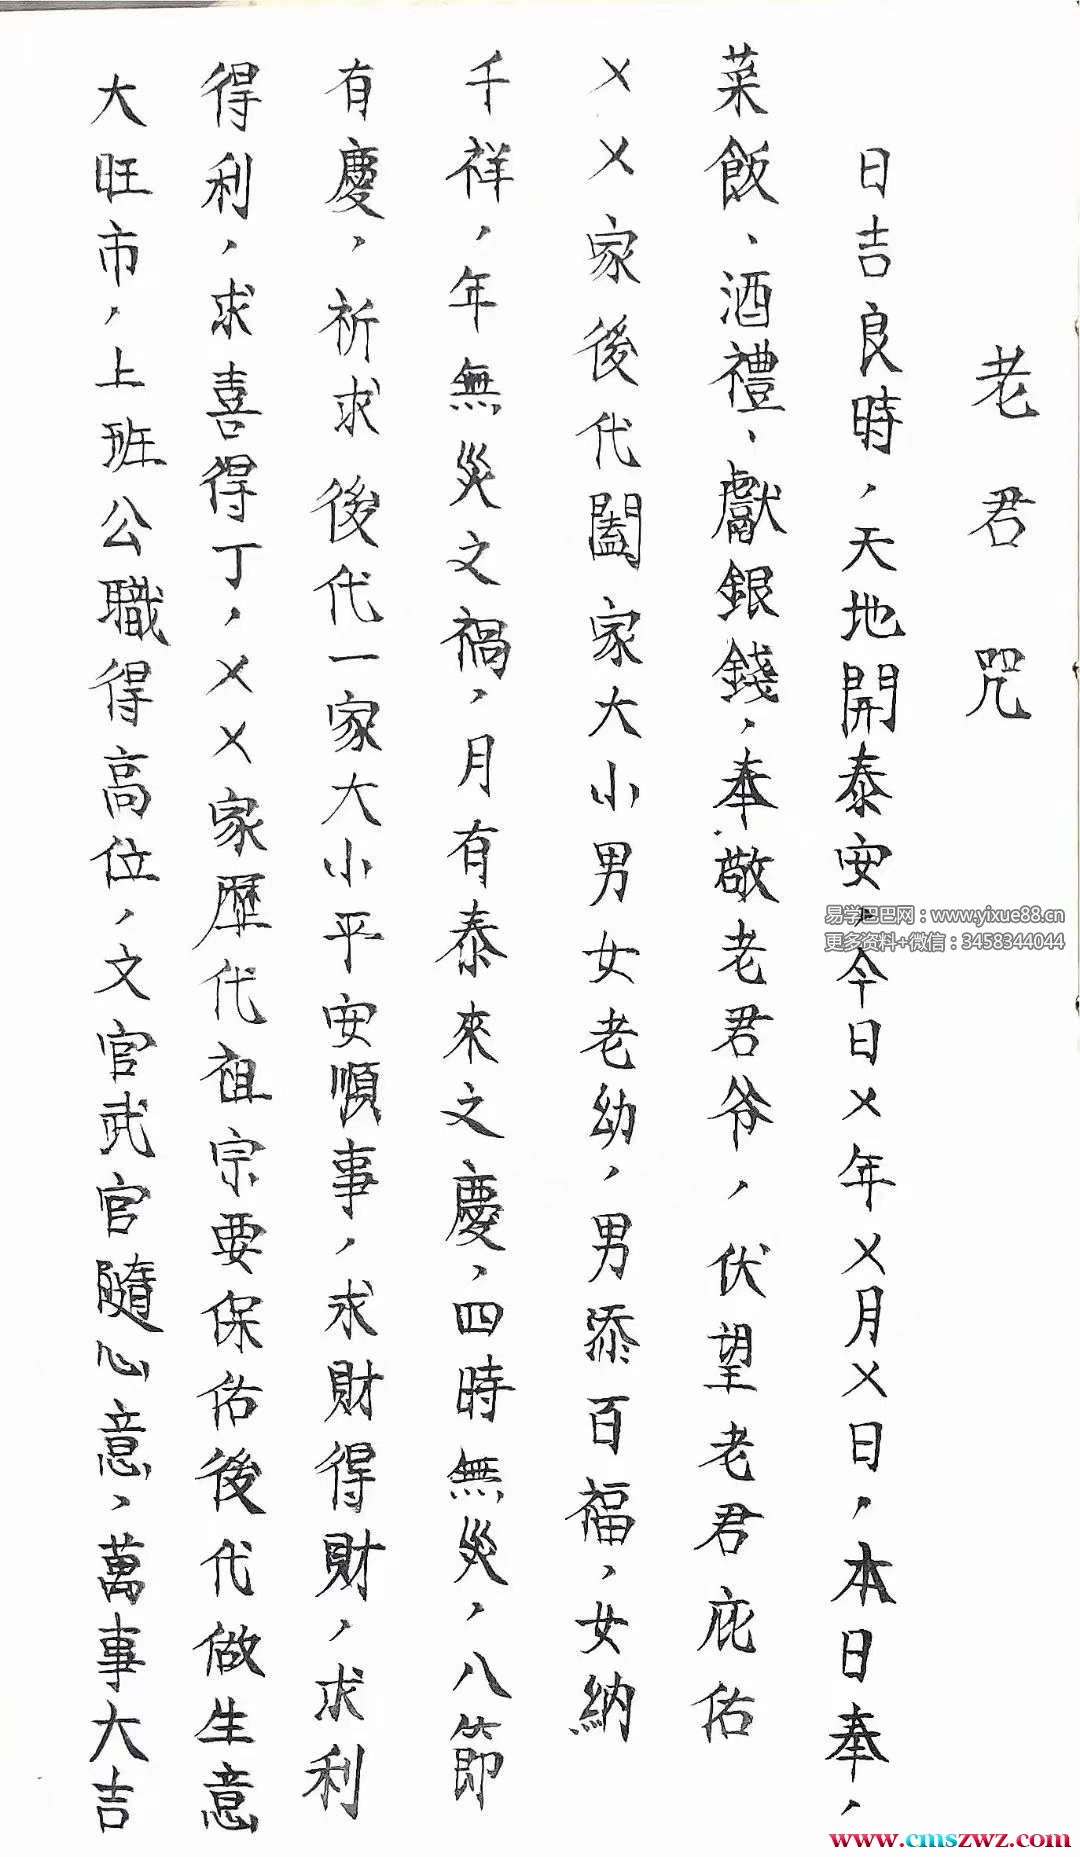 老君咒
日吉良時，天地開泰安，今日㐅年㐅月㐅日，本日奉，
菜飯、酒禮、獻銀錢，奉敬老君爷，伏望老君庇佑
㐅㐅家後代闔家大小男女老幼，男添百福，女納
千祥，年無災之禍，月有泰來之慶，四時無災，八節
有慶，祈求後代一家大小平安順事，求財得財，求利
得利，求喜得丁，㐅㐅家歷代祖宗要保佑後代做生意
大旺市，上班公職得高位，文官武官隨心意，萬事大吉
易学巴巴网：www.yixue88.cn
更多资料+微信：3458344044
www.cmszwz.com